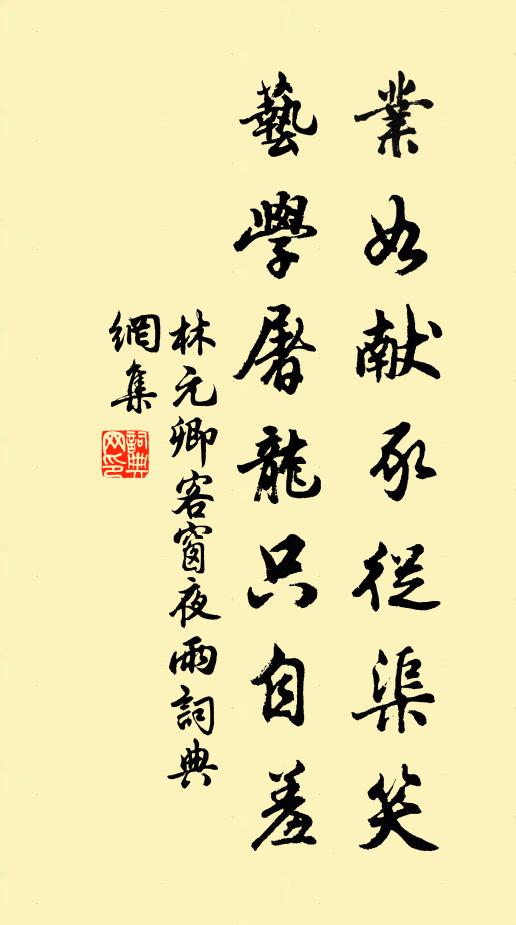 業如献豕從渠笑
藝學屠龍只自羞
林元卿客窗夜雨詞典
網集
詞典網印